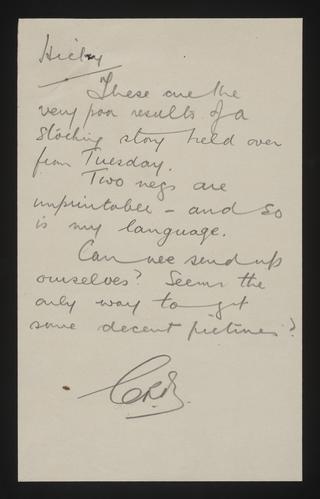 Hicky
These are the
very poor results of a
Stocking story held over
from Tuesday.
Two negs are
unprintable - and so
is my language.
Can we send up
ourselves? Seems the
only way to get
some decent pictures?